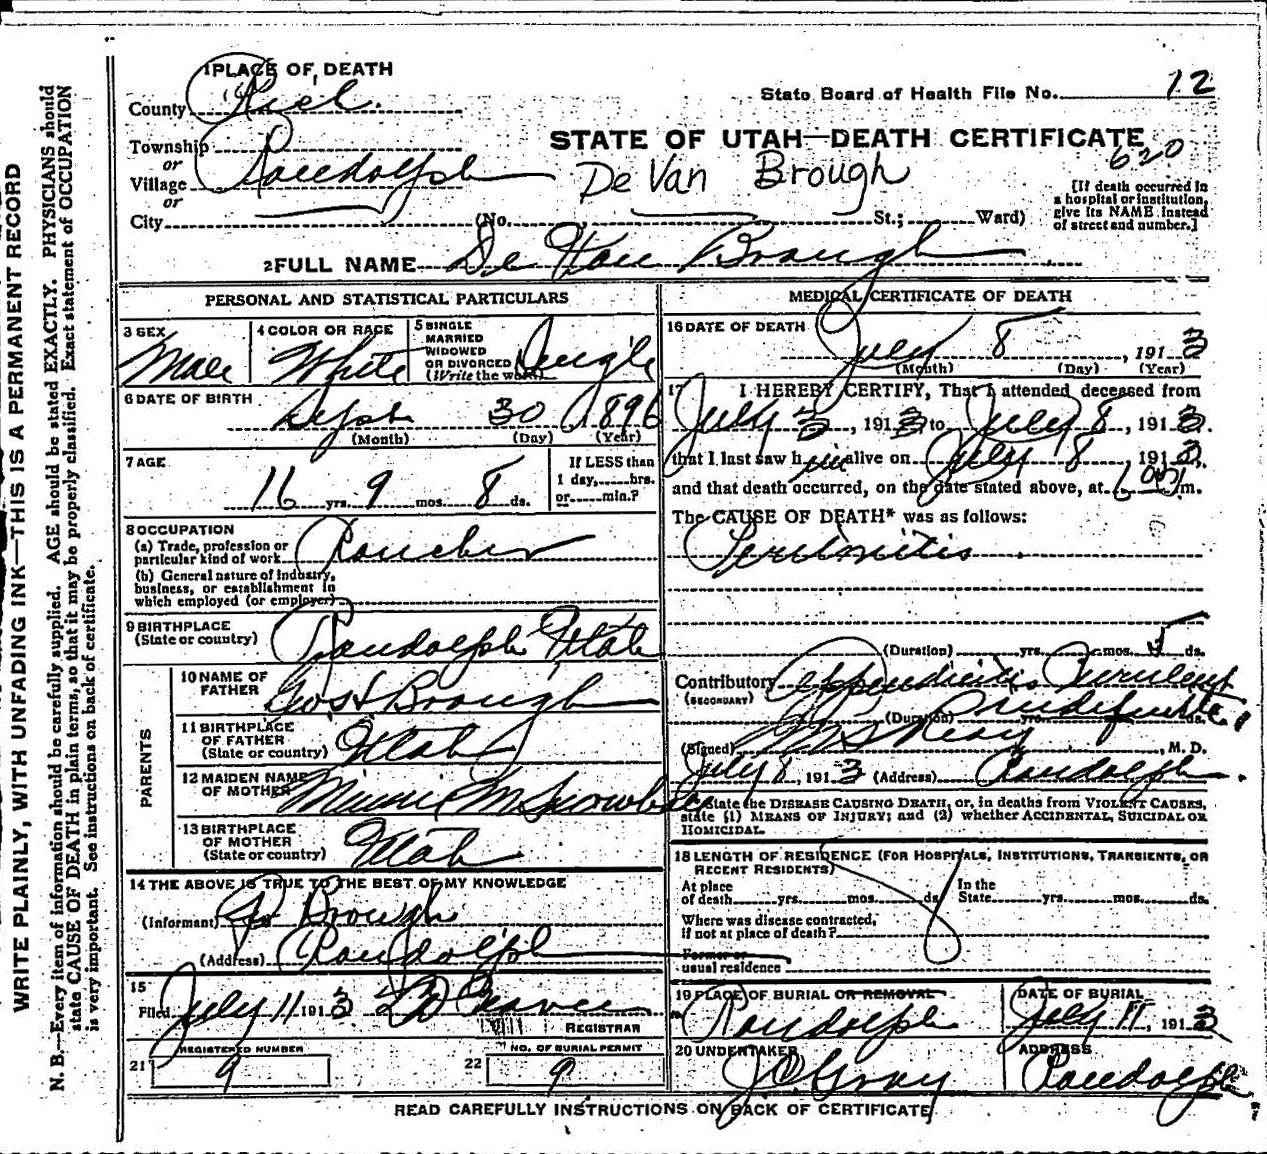 1 PLACE OF DEATH
County Rich
State Board of Health File No. 12
STATE OF UTAH—DEATH CERTIFICATE
620
Township
or
Village Randolph
or
City (No. St.; Ward)
De Van Brough
[If death occurred in
a hospital or institution,
give its NAME instead
of street and number.]
2 FULL NAME De Van Brough
PERSONAL AND STATISTICAL PARTICULARS
3 SEX
Male
4 COLOR OR RACE
White
5 SINGLE
MARRIED
WIDOWED
OR DIVORCED
(Write the word)
Single
6 DATE OF BIRTH
Sept 30 1896
(Month) (Day) (Year)
7 AGE
16 yrs. 9 mos. 8 ds.
If LESS than
1 day, hrs.
or min.?
8 OCCUPATION
(a) Trade, profession or
particular kind of work Rancher
(b) General nature of industry,
business, or establishment in
which employed (or employer)
9 BIRTHPLACE
(State or country) Randolph Utah
PARENTS
10 NAME OF
FATHER Geo H Brough
11 BIRTHPLACE
OF FATHER
(State or country) Utah
12 MAIDEN NAME
OF MOTHER Minnie M
13 BIRTHPLACE
OF MOTHER
(State or country) Utah
14 THE ABOVE IS TRUE TO THE BEST OF MY KNOWLEDGE
(Informant) Brough
(Address) Randolph
15
Filed July 11 1913
REGISTRAR
REGISTERED NUMBER
21 9
NO. OF BURIAL PERMIT
22 9
MEDICAL CERTIFICATE OF DEATH
16 DATE OF DEATH
July 8, 1913
(Month) (Day) (Year)
17 I HEREBY CERTIFY, That I attended deceased from
July 3, 1913 to July 8, 1913.
that I last saw him alive on July 8, 1913,
and that death occurred, on the date stated above, at 6 m.
The CAUSE OF DEATH* was as follows:
Peritonitis
(Duration) yrs. mos. 5 ds.
Contributory Appendicitis Purulent
(SECONDARY)
(Duration) yrs. ds.
(Signed) , M. D.
July 8, 1913 (Address) Randolph
*State the DISEASE CAUSING DEATH, or, in deaths from VIOLENT CAUSES,
state (1) MEANS OF INJURY; and (2) whether ACCIDENTAL, SUICIDAL OR
HOMICIDAL.
18 LENGTH OF RESIDENCE (FOR HOSPITALS, INSTITUTIONS, TRANSIENTS, OR
RECENT RESIDENTS)
At place
of death yrs. mos. ds.
In the
State yrs. mos. ds.
Where was disease contracted,
if not at place of death?
Former or
usual residence
19 PLACE OF BURIAL OR REMOVAL
Randolph
DATE OF BURIAL
July 11, 1913
20 UNDERTAKER
J O Gray
ADDRESS
Randolph
READ CAREFULLY INSTRUCTIONS ON BACK OF CERTIFICATE
WRITE PLAINLY, WITH UNFADING INK—THIS IS A PERMANENT RECORD
N. B.—Every item of information should be carefully supplied. AGE should be stated EXACTLY. PHYSICIANS should
state CAUSE OF DEATH in plain terms, so that it may be properly classified. Exact statement of OCCUPATION
is very important. See instructions on back of certificate.